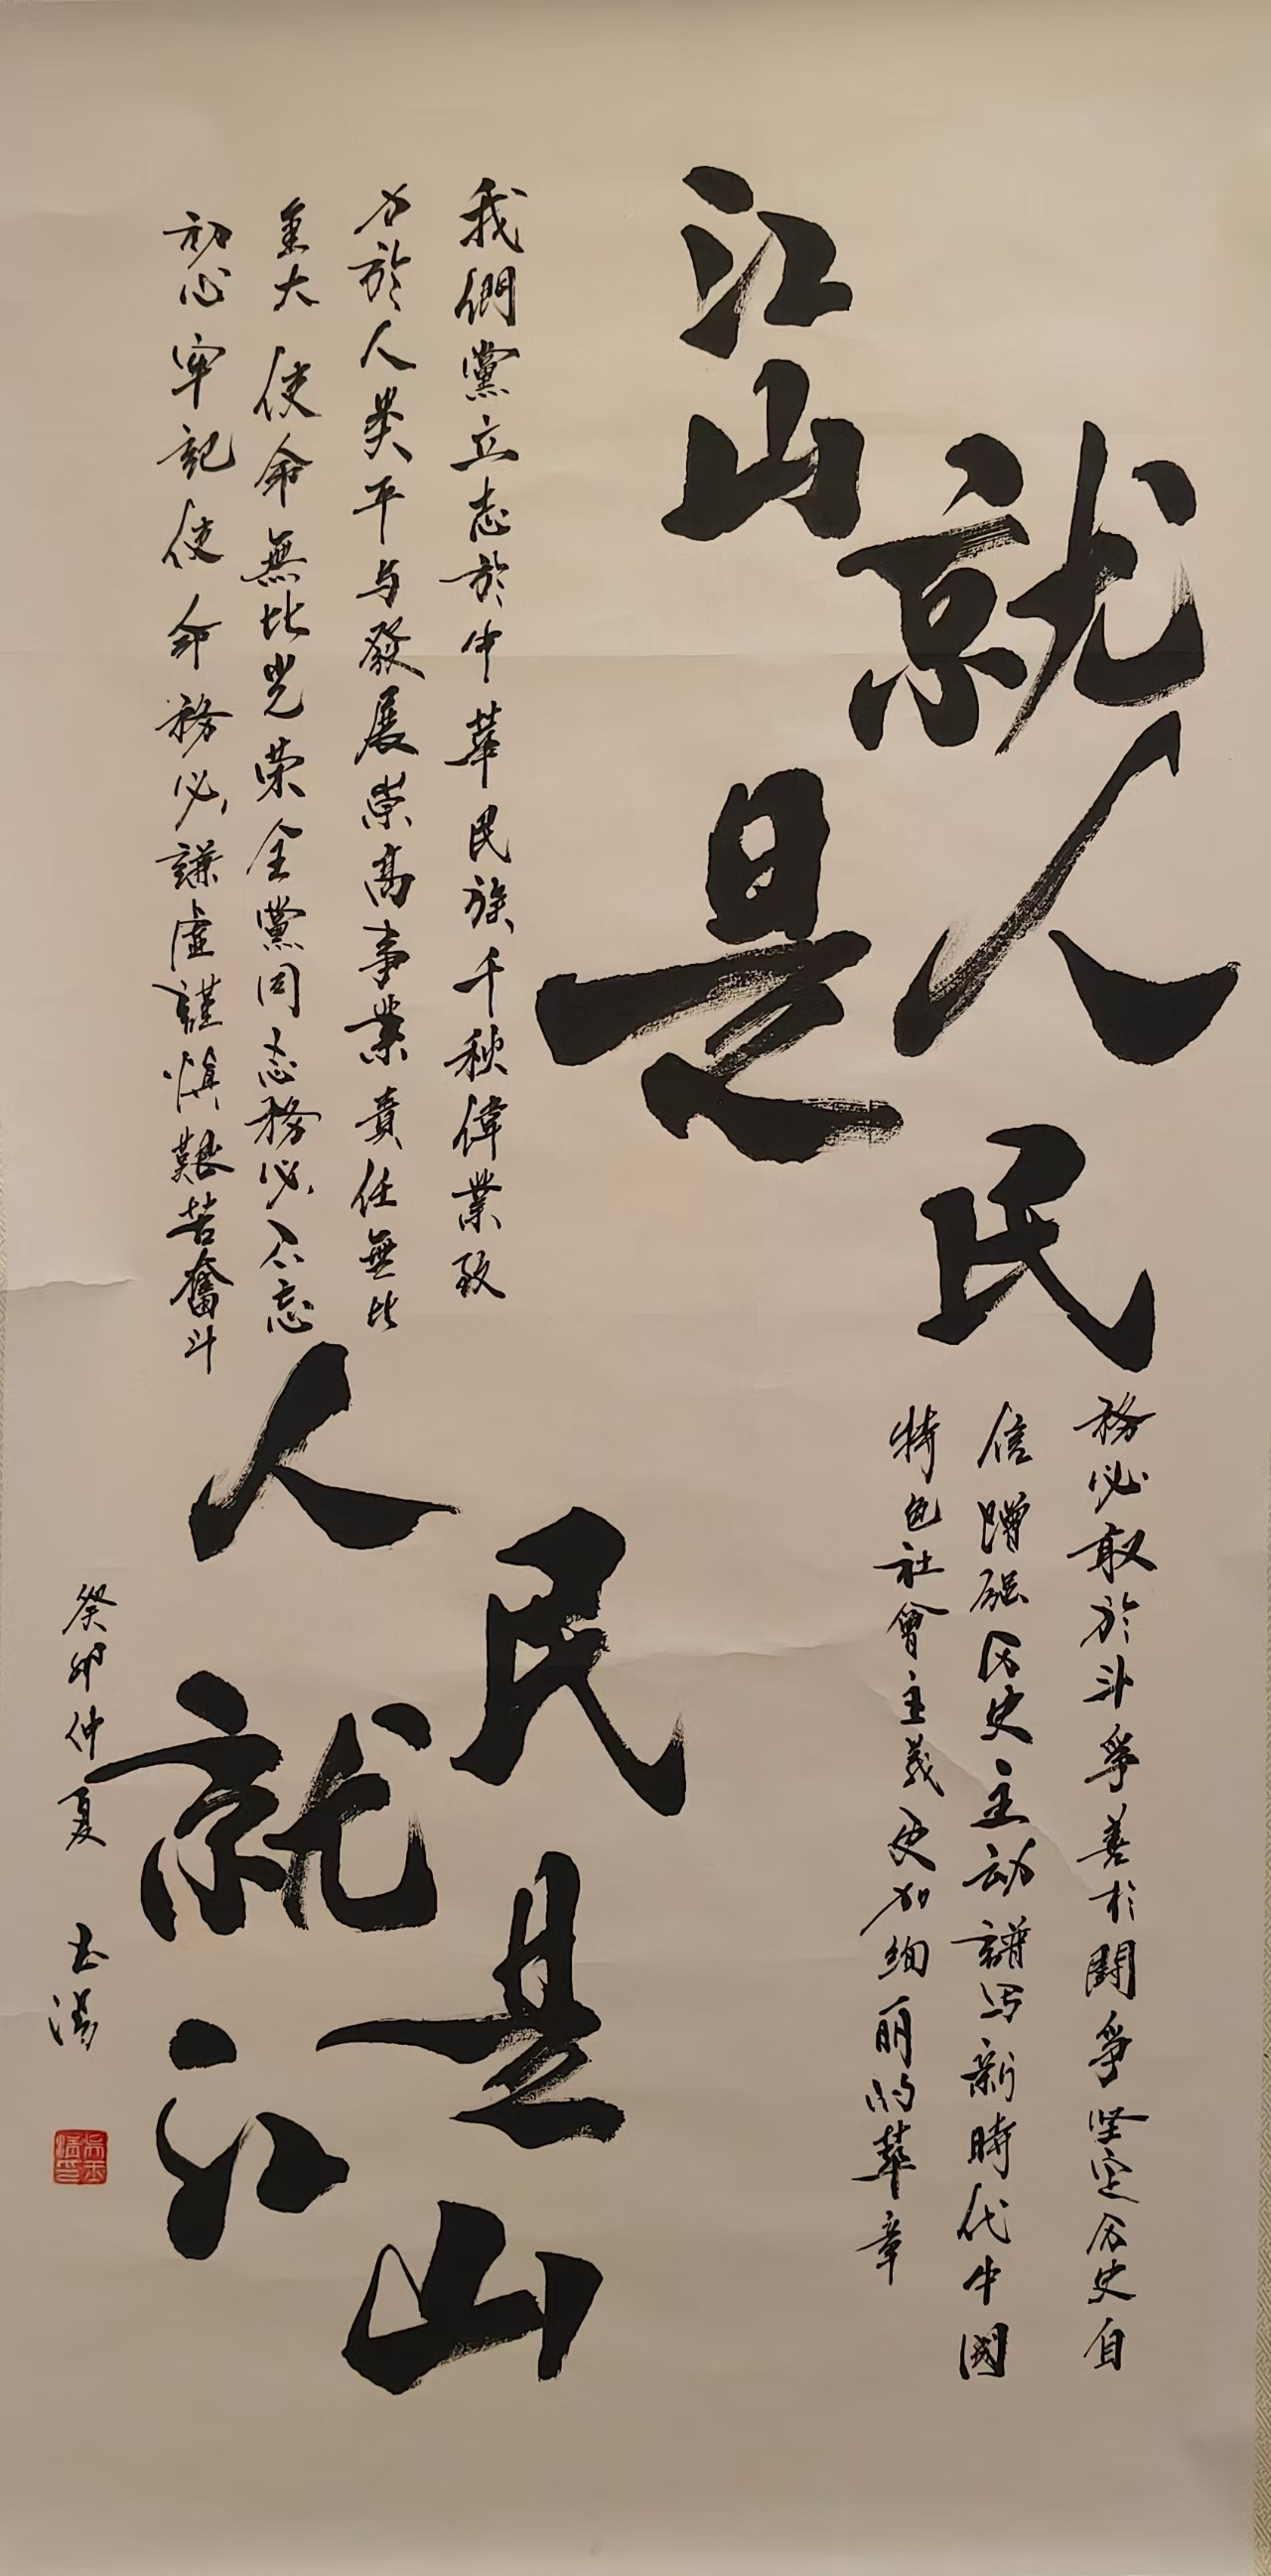 江山就是人民
人民就是江山
我們黨立志於中華民族千秋偉業致
力於人类平与發展崇高事業責任無比
重大使命無比光荣全黨同志務必不忘
初心牢記使命務必謙虛謹慎艱苦奮斗
務必敢於斗爭善於鬪爭坚定历史自
信增强历史主动譜写新時代中國
特色社會主義更加绚丽的華章
癸卯仲夏